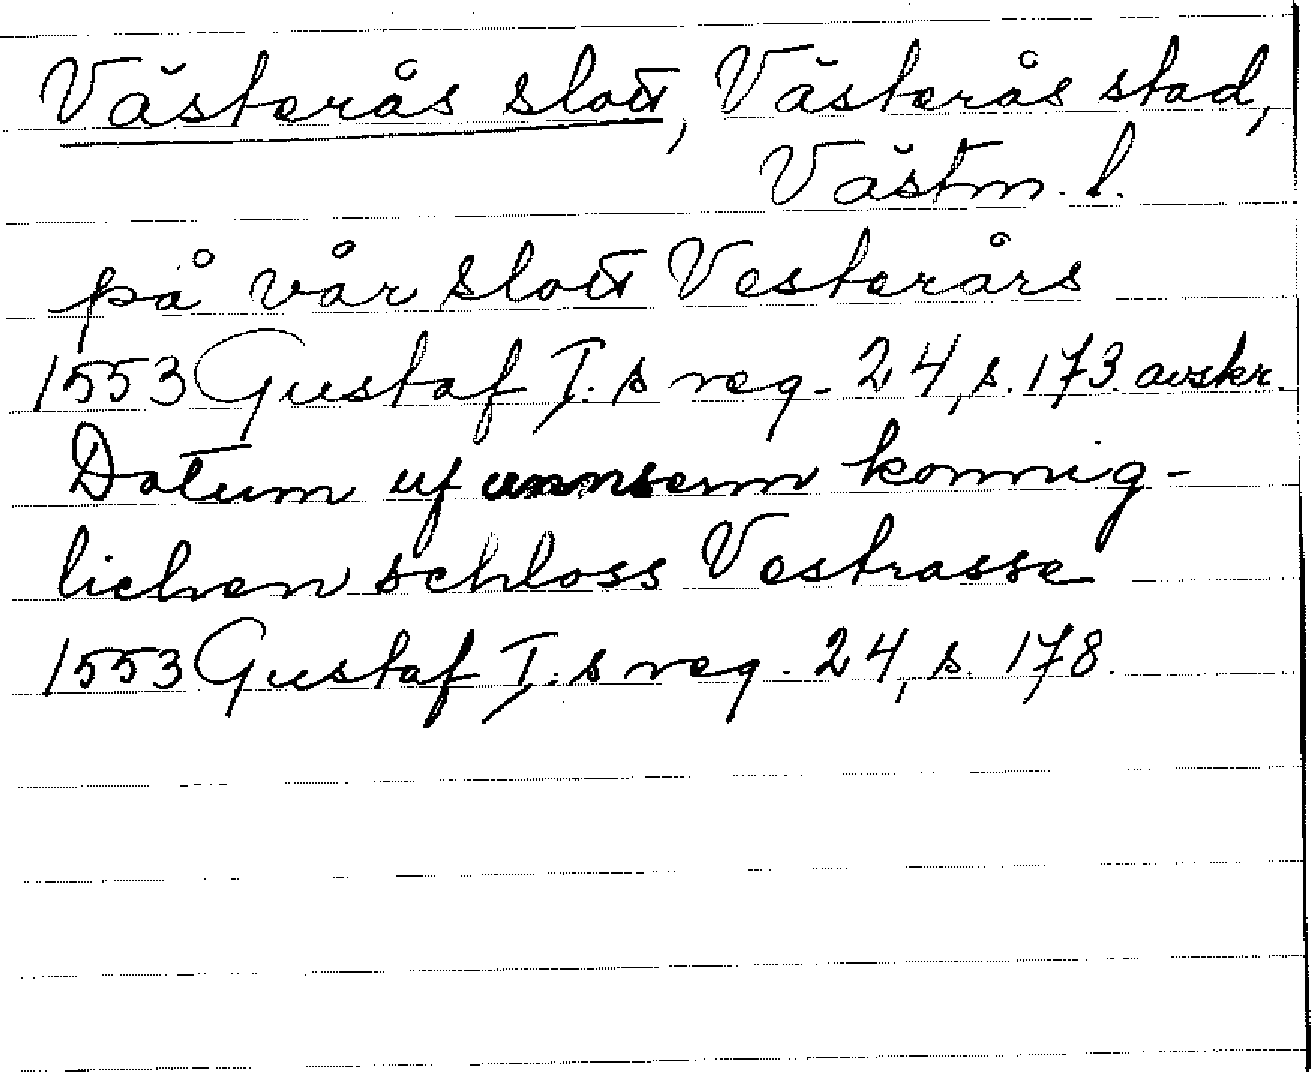 Västerås slott, Västerås stad,
Västm. l.
på vår slott Vesterårs
1553 Gustaf I.s reg. 24, s. 173. avskr.
Datum uf unnserm konnig-
lichen schloss Vestrasse
1553 Gustaf I.s reg. 24, s. 178.